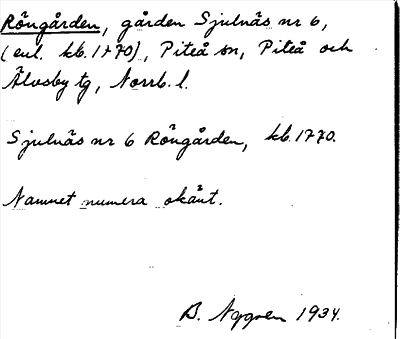 Röngården, gården Sjulnäs nr 6,
(enl. kb. 1770), Piteå sn, Piteå och
Älvsby tg, Norrb. l.
Sjulnäs nr 6 Röngården, kb. 1770.
Namnet numera okänt.
B. Nygren 1934.